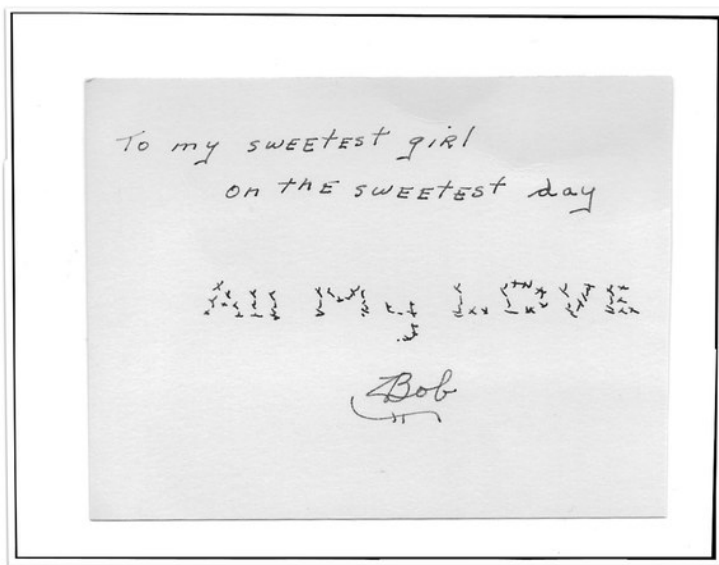 To my sweetest girl
on the sweetest day
All My Love
Bob